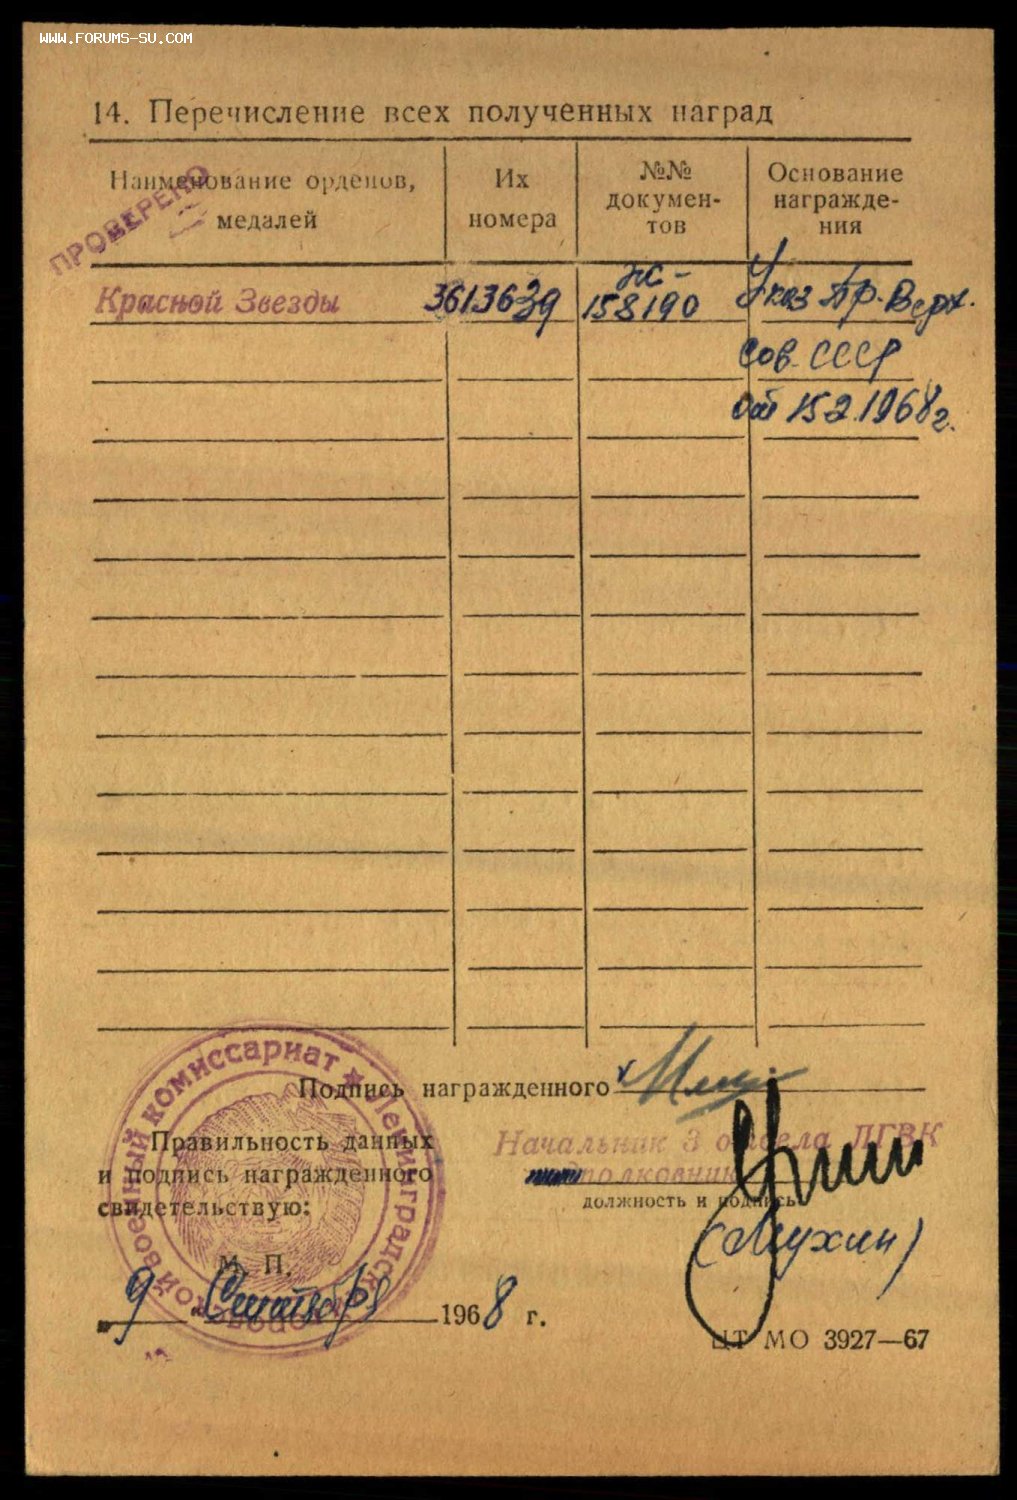 WWW.FORUMS-SU.COM
14. Перечисление всех полученных наград
Наименование орденов, медалей
Их номера
№№ докумен-
тов
Основание
награжде-
ния
ПРОВЕРЕНО
Красной Звезды 3613639 158190 Указ Пр. Верх.
Сов. СССР
от 15.2.1968 г.
Подпись награжденного
Правильность данных
и подпись награжденного
свидетельствую:
Начальник 3 отдела ЛГВК
полковник
должность и подпись
(Мухин)
М. П.
„ 9 “ Сентября 1968 г.
ЦТ МО 3927—67
Ленинградский городской военный комиссариат